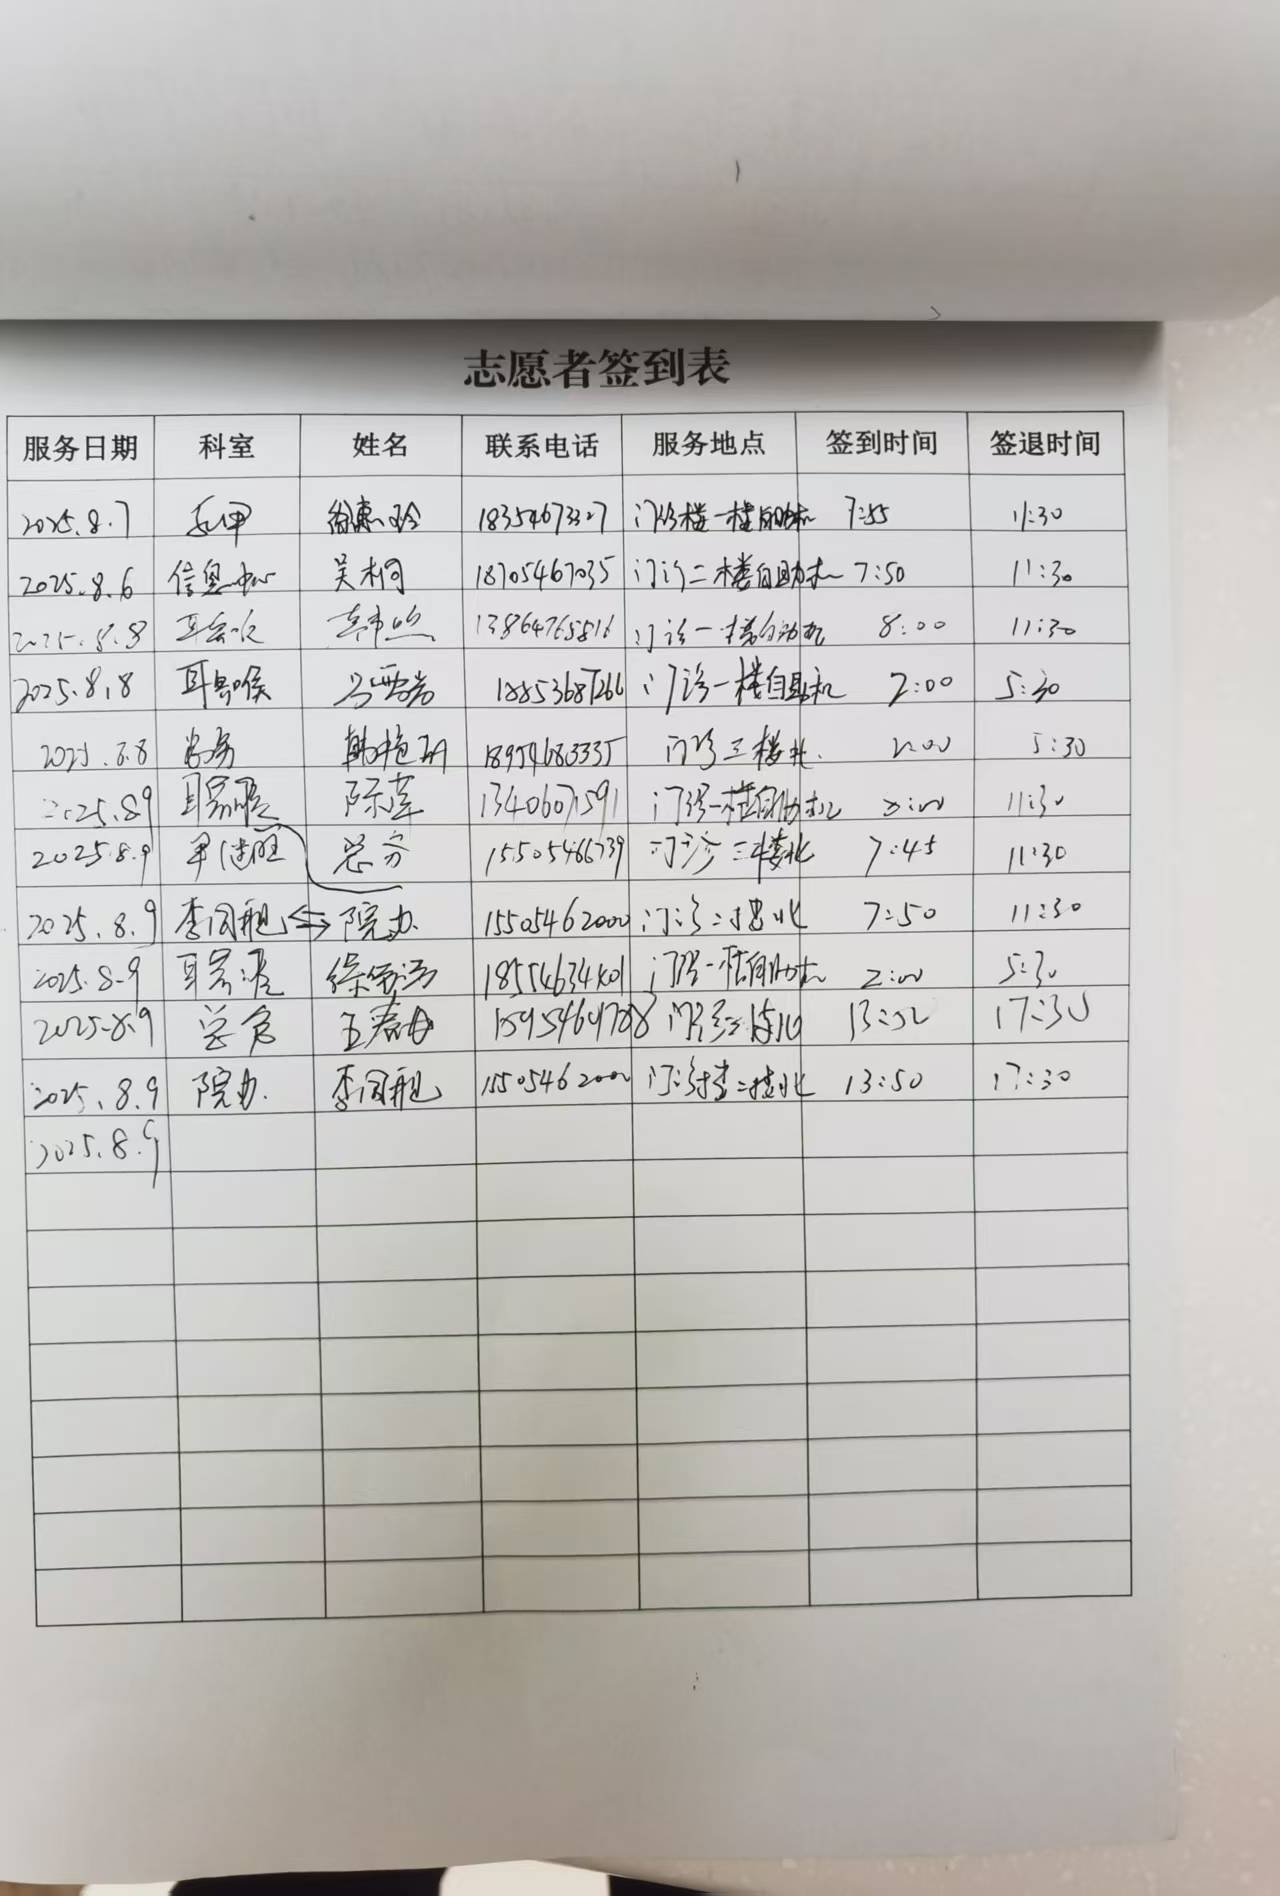 志愿者签到表
服务日期 科室 姓名 联系电话 服务地点 签到时间 签退时间
2025.8.7 徐惠玲 18354673327 门诊楼一楼自助机 7:55 11:30
2025.8.6 信息中心 吴桐 18705467035 门诊二楼自助机 7:50 11:30
2025.8.8 13864765816 门诊一楼自助机 8:00 11:30
2025.8.8 耳鼻喉 18853687266 门诊一楼自助机 2:00 5:30
2025.8.8 韩艳 18954683335 门诊三楼北. 2:00 5:30
2025.8.9 耳鼻喉 陈莲 1340607591 门诊一楼自助机 8:00 11:30
2025.8.9 总务 15505466739 门诊三楼北 7:45 11:30
2025.8.9 院办. 15505462000 门诊二楼北 7:50 11:30
2025.8.9 耳鼻喉 门诊一楼自助机 2:00 5:30
2025.8.9 王春 13:52 17:30
2025.8.9 院办. 15505462000 二楼北 13:50 17:30
2025.8.9